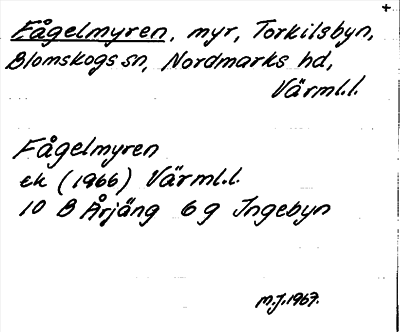 +
Fågelmyren, myr, Torkilsbyn,
Blomskogs sn, Nordmarks hd,
Värml.l.
Fågelmyren
ek (1966) Värml.l.
10 B Årjäng 6 g Ingebyn
M.J. 1967.